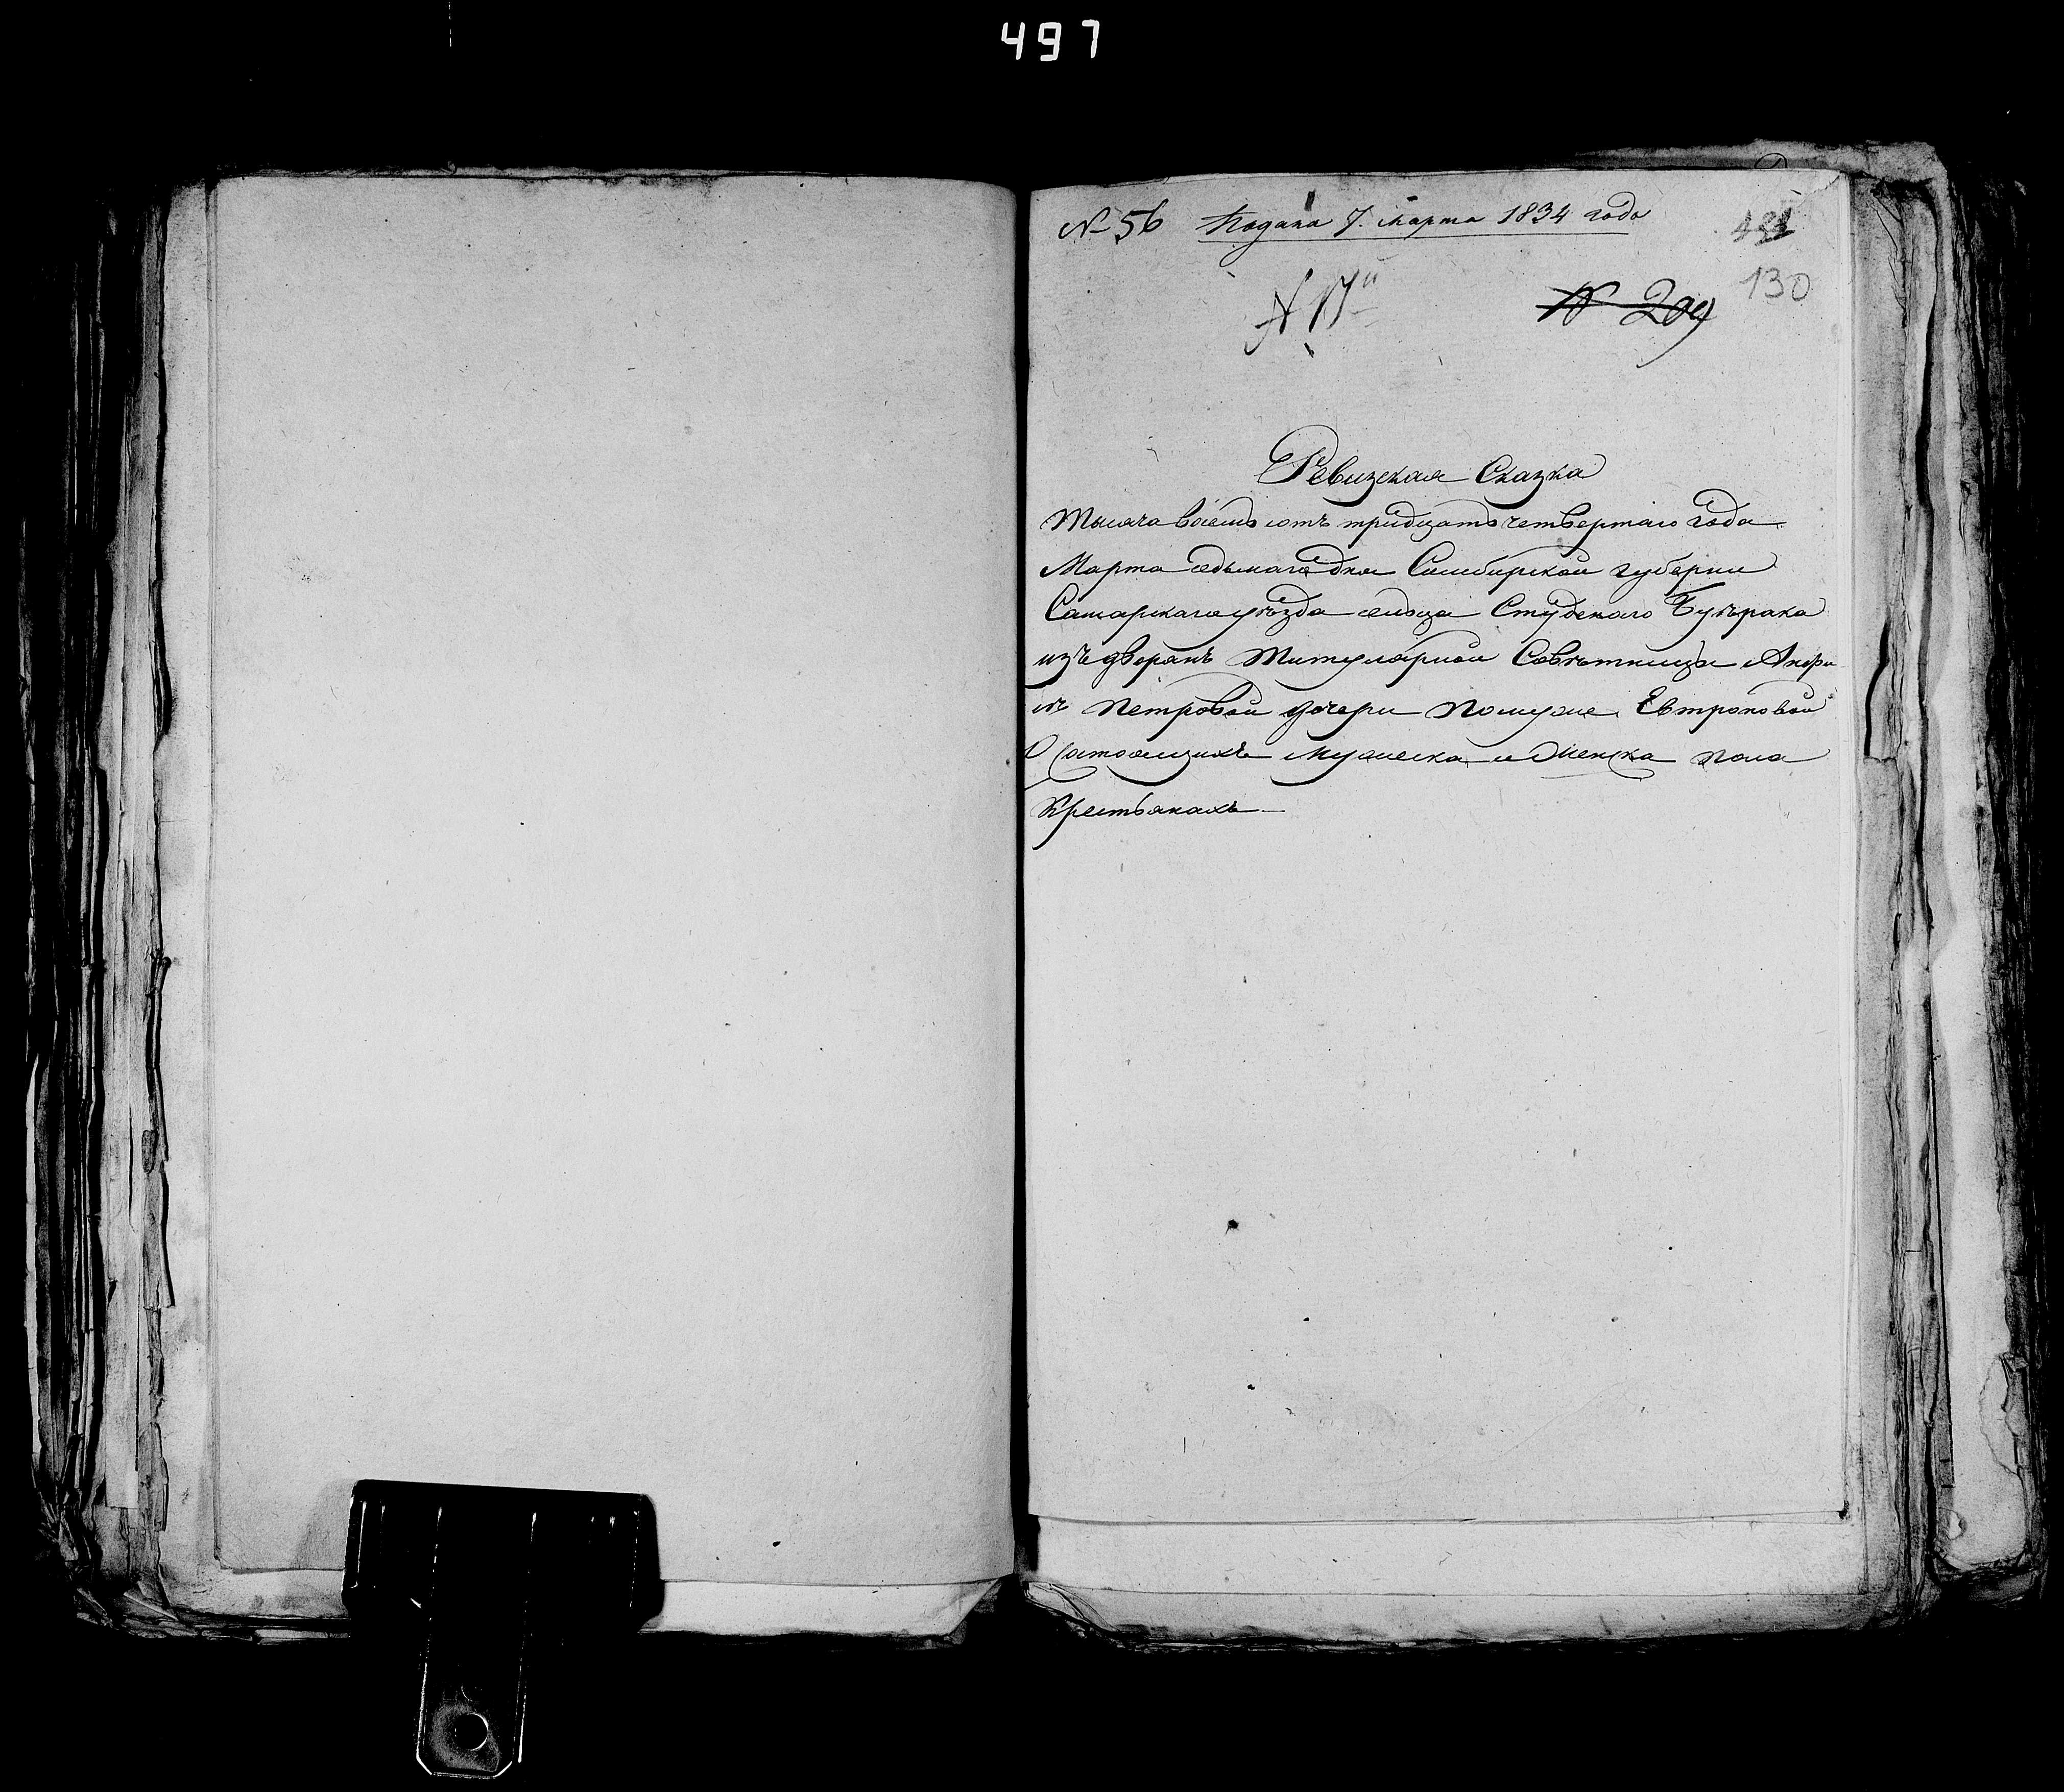 497
№ 56 Подана 7. марта 1834 года
130
№ 17й
№ 209
Ревизская Сказка
Тысяча восемь сотъ тридцать четвертаго года
Марта седьмаго дня Симбирской губернии
Самарскаго уѣзда сельца Студенаго Буерака
изъ дворянъ Титулярной Совѣтницы Анфи
сы Петровой дочери помуже Евтроповой
О состоящихъ мужеска и женска пола
Крестьянахъ